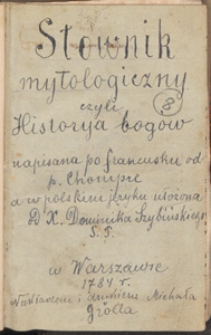 Słownik
mytologiczny
czyli
8
Historyja bogów
napisana po francusku od
p. Chompre
a w polskim języku ułożona
D X. Dominika Szybińskiego
S. P.
w Warszawie
1784 r.
Nakładem i drukiem Michała
Grölla